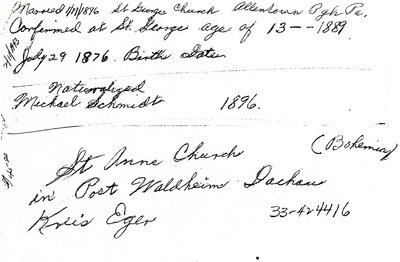 Married 1/11/1896 St George Church Allentown Pgh Pa.
Confirmed at St. George age of 13 -- 1889
July 29 1876. Birth Date
Naturalized
Michael Schmidt 1896.
St Anne Church (Bohemia)
in Post Waldheim Dachau
Kreis Eger 33-424416